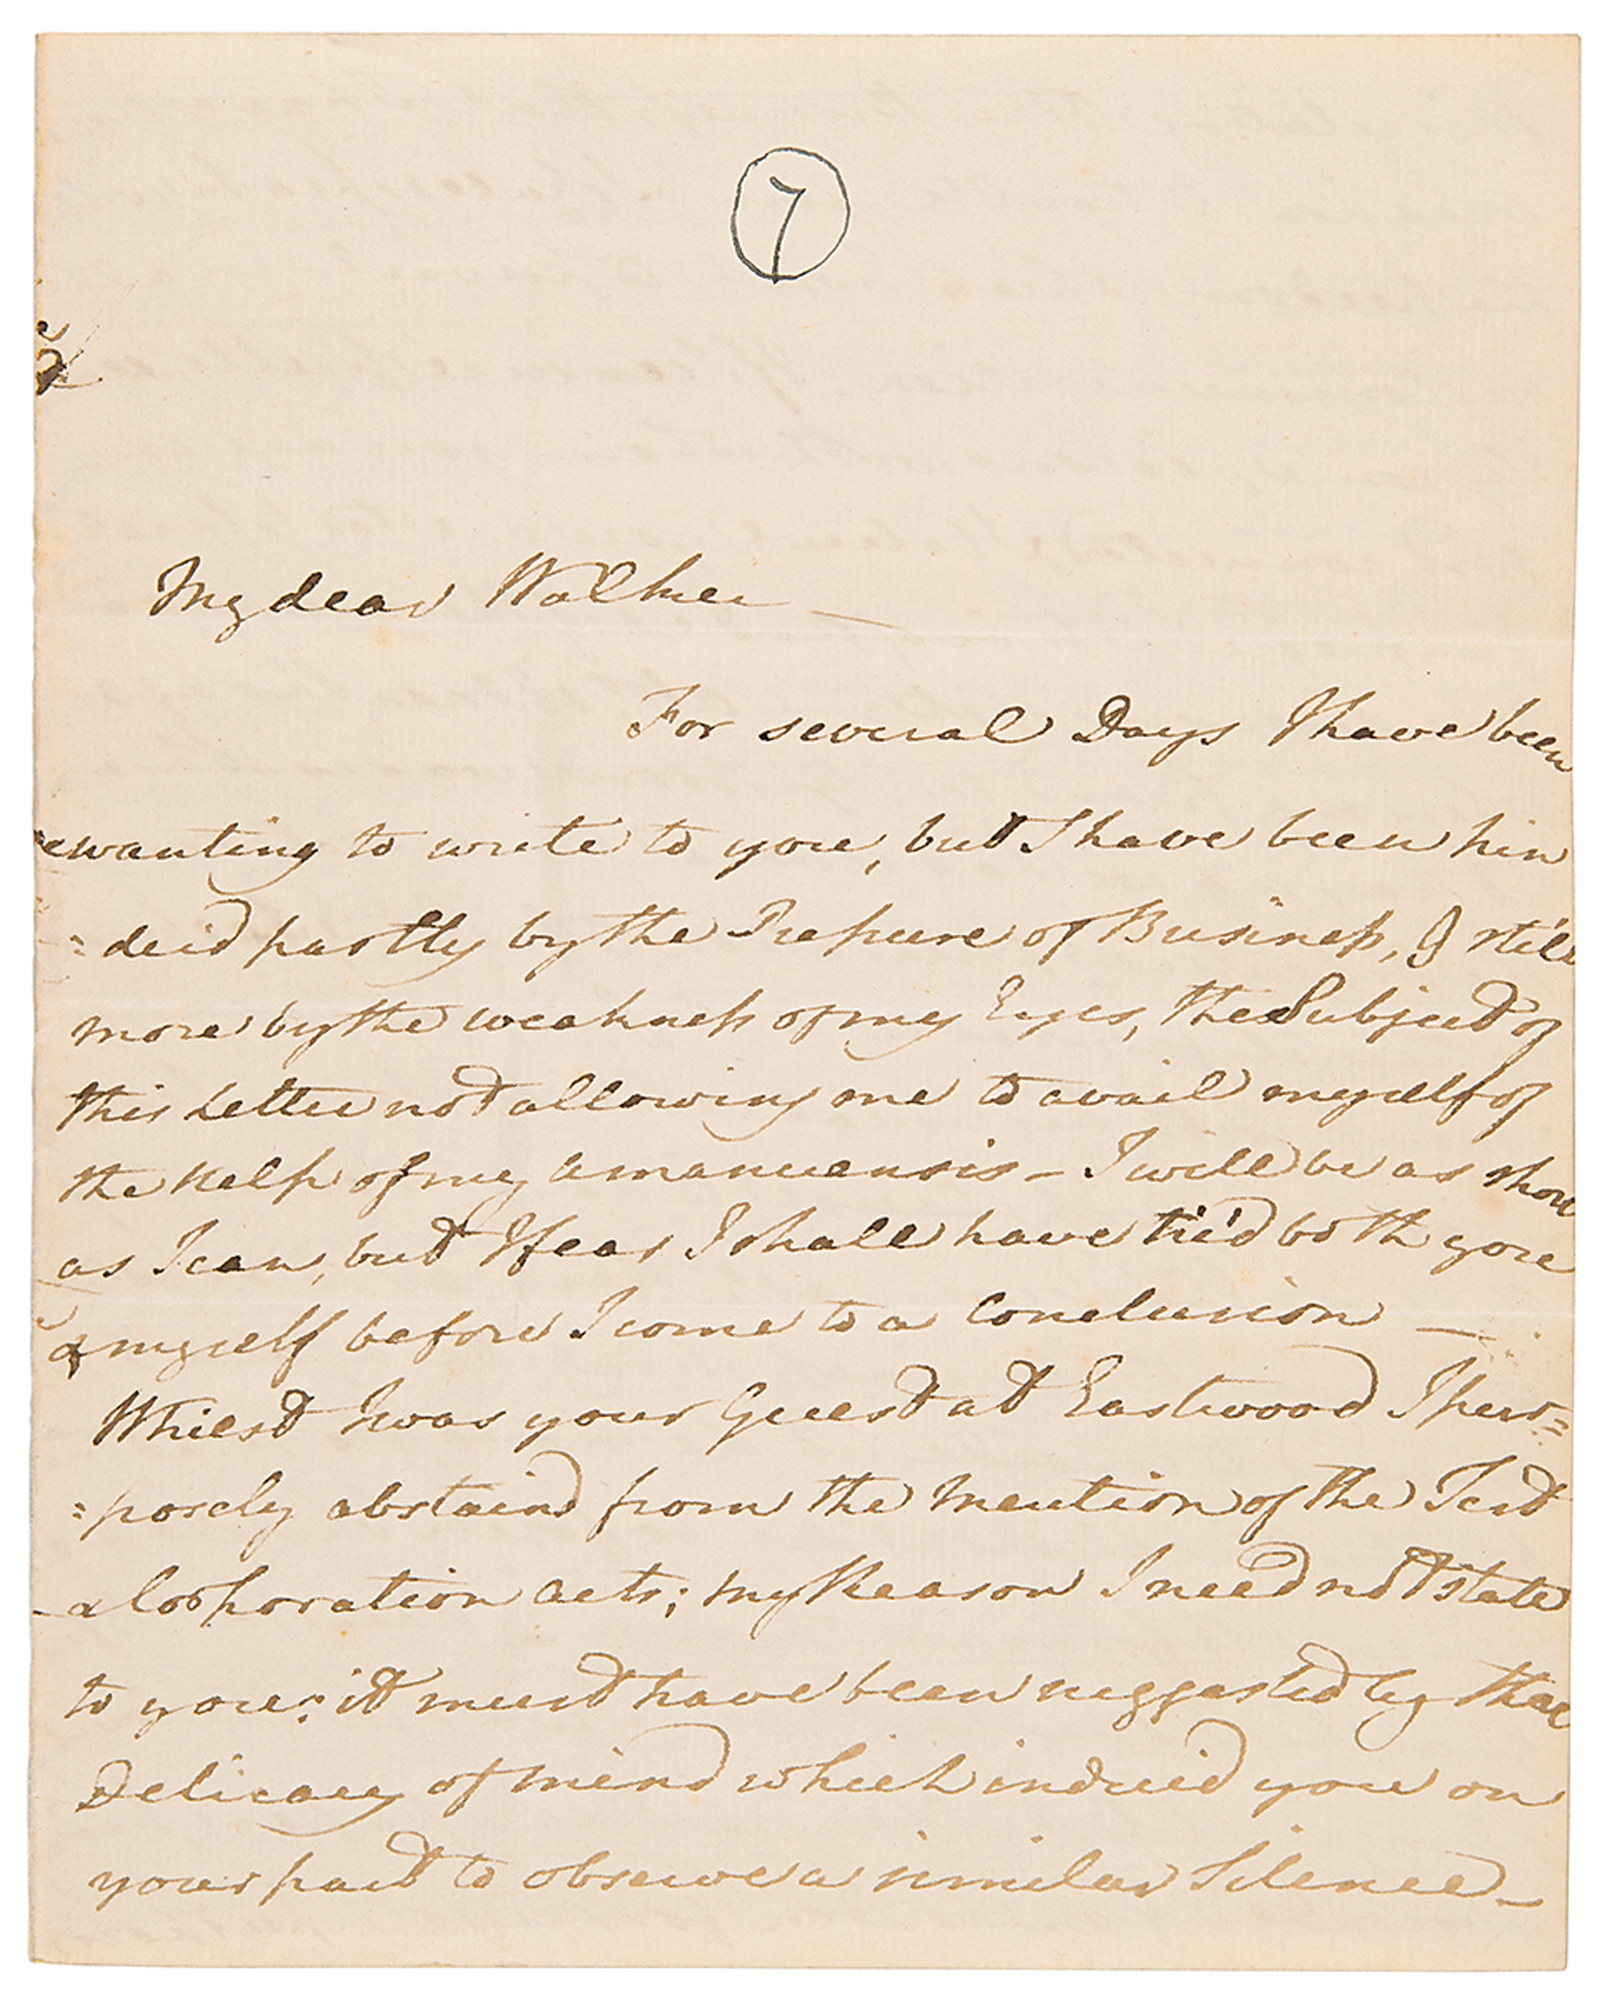 7
My dear Walker —
For several Days I have been
wanting to write to you, but I have been hin
=der'd partly by the Pressure of Business, & still
more by the weakness of my Eyes, the Subject of
this Letter not allowing me to avail myself of
the Help of my Amanuensis — I will be as short
as I can, but I fear I shall have tir'd both you
& myself before I come to a Conclusion —
Whilst I was your Guest at Eastwood I pur=
=posely abstaind from the Mention of the Test
& Corporation Acts; my Reason I need not state
to you; it must have been suggested by that
Delicacy of mind which induced you on
your part to observe a similar Silence —